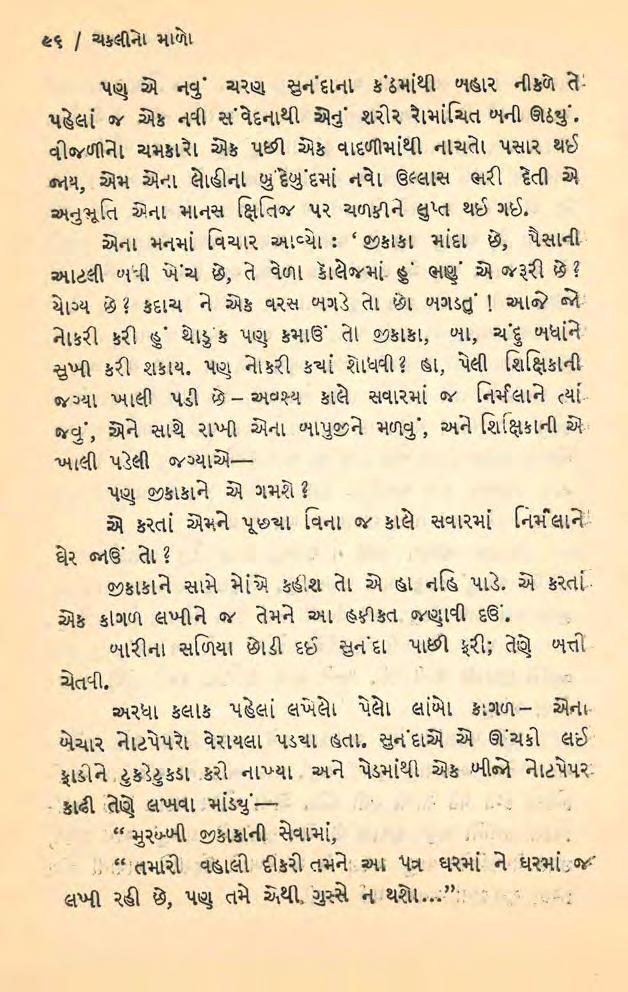 ૯૬ / ચકલીનો માળો
પણ એ નવું ચરણ સુનંદાના કંઠમાંથી બહાર નીકળે તે
પહેલાં જ એક નવી સંવેદનાથી એનું શરીર રોમાંચિત બની ઊઠ્યું.
વીજળીનો ચમકારો એક પછી એક વાદળીમાંથી નાચતો પસાર થઈ
જાય, એમ એના લોહીના બુંદેબુંદમાં નવો ઉલ્લાસ ભરી દેતી એ
અનુભૂતિ એના માનસ ક્ષિતિજ પર ચળકીને લુપ્ત થઈ ગઈ.
એના મનમાં વિચાર આવ્યો : ‘જીકાકા માંદા છે, પૈસાની
આટલી બધી ખેંચ છે, તે વેળા કૉલેજમાં હું ભણું એ જરૂરી છે?
યોગ્ય છે? કદાચ ને એક વરસ બગડે તો છો બગડતું ! આજે જો
નોકરી કરી હું થોડુંક પણ કમાઉં તો જીકાકા, બા, ચંદુ બધાંને
સુખી કરી શકાય. પણ નોકરી ક્યાં શોધવી? હા, પેલી શિક્ષિકાની
જગ્યા ખાલી પડી છે – અવશ્ય કાલે સવારમાં જ નિર્મલાને ત્યાં
જવું, એને સાથે રાખી એના બાપુજીને મળવું, અને શિક્ષિકાની એ
ખાલી પડેલી જગ્યાએ—
પણ જીકાકાને એ ગમશે?
એ કરતાં એમને પૂછ્યા વિના જ કાલે સવારમાં નિર્મલાને
ઘેર જાઉં તો?
જીકાકાને સામે મોંએ કહીશ તો એ હા નહિ પાડે. એ કરતાં
એક કાગળ લખીને જ તેમને આ હકીકત જણાવી દઉં.
બારીના સળિયા છોડી દઈ સુનંદા પાછી ફરી; તેણે બત્તી
ચેતવી.
અરધા કલાક પહેલાં લખેલો પેલો લાંબો કાગળ – એના
બેચાર નોટપેપરો વેરાયલા પડ્યા હતા. સુનંદાએ એ ઊંચકી લઈ
ફાડીને ટુકડેટુકડા કરી નાખ્યા અને પેડમાંથી એક બીજો નોટપેપર
કાઢી તેણે લખવા માંડ્યું—
“મુરબ્બી જીકાકાની સેવામાં,
“તમારી વહાલી દીકરી તમને આ પત્ર ઘરમાં ને ઘરમાં જ
લખી રહી છે, પણ તમે એથી ગુસ્સે ન થશો...”